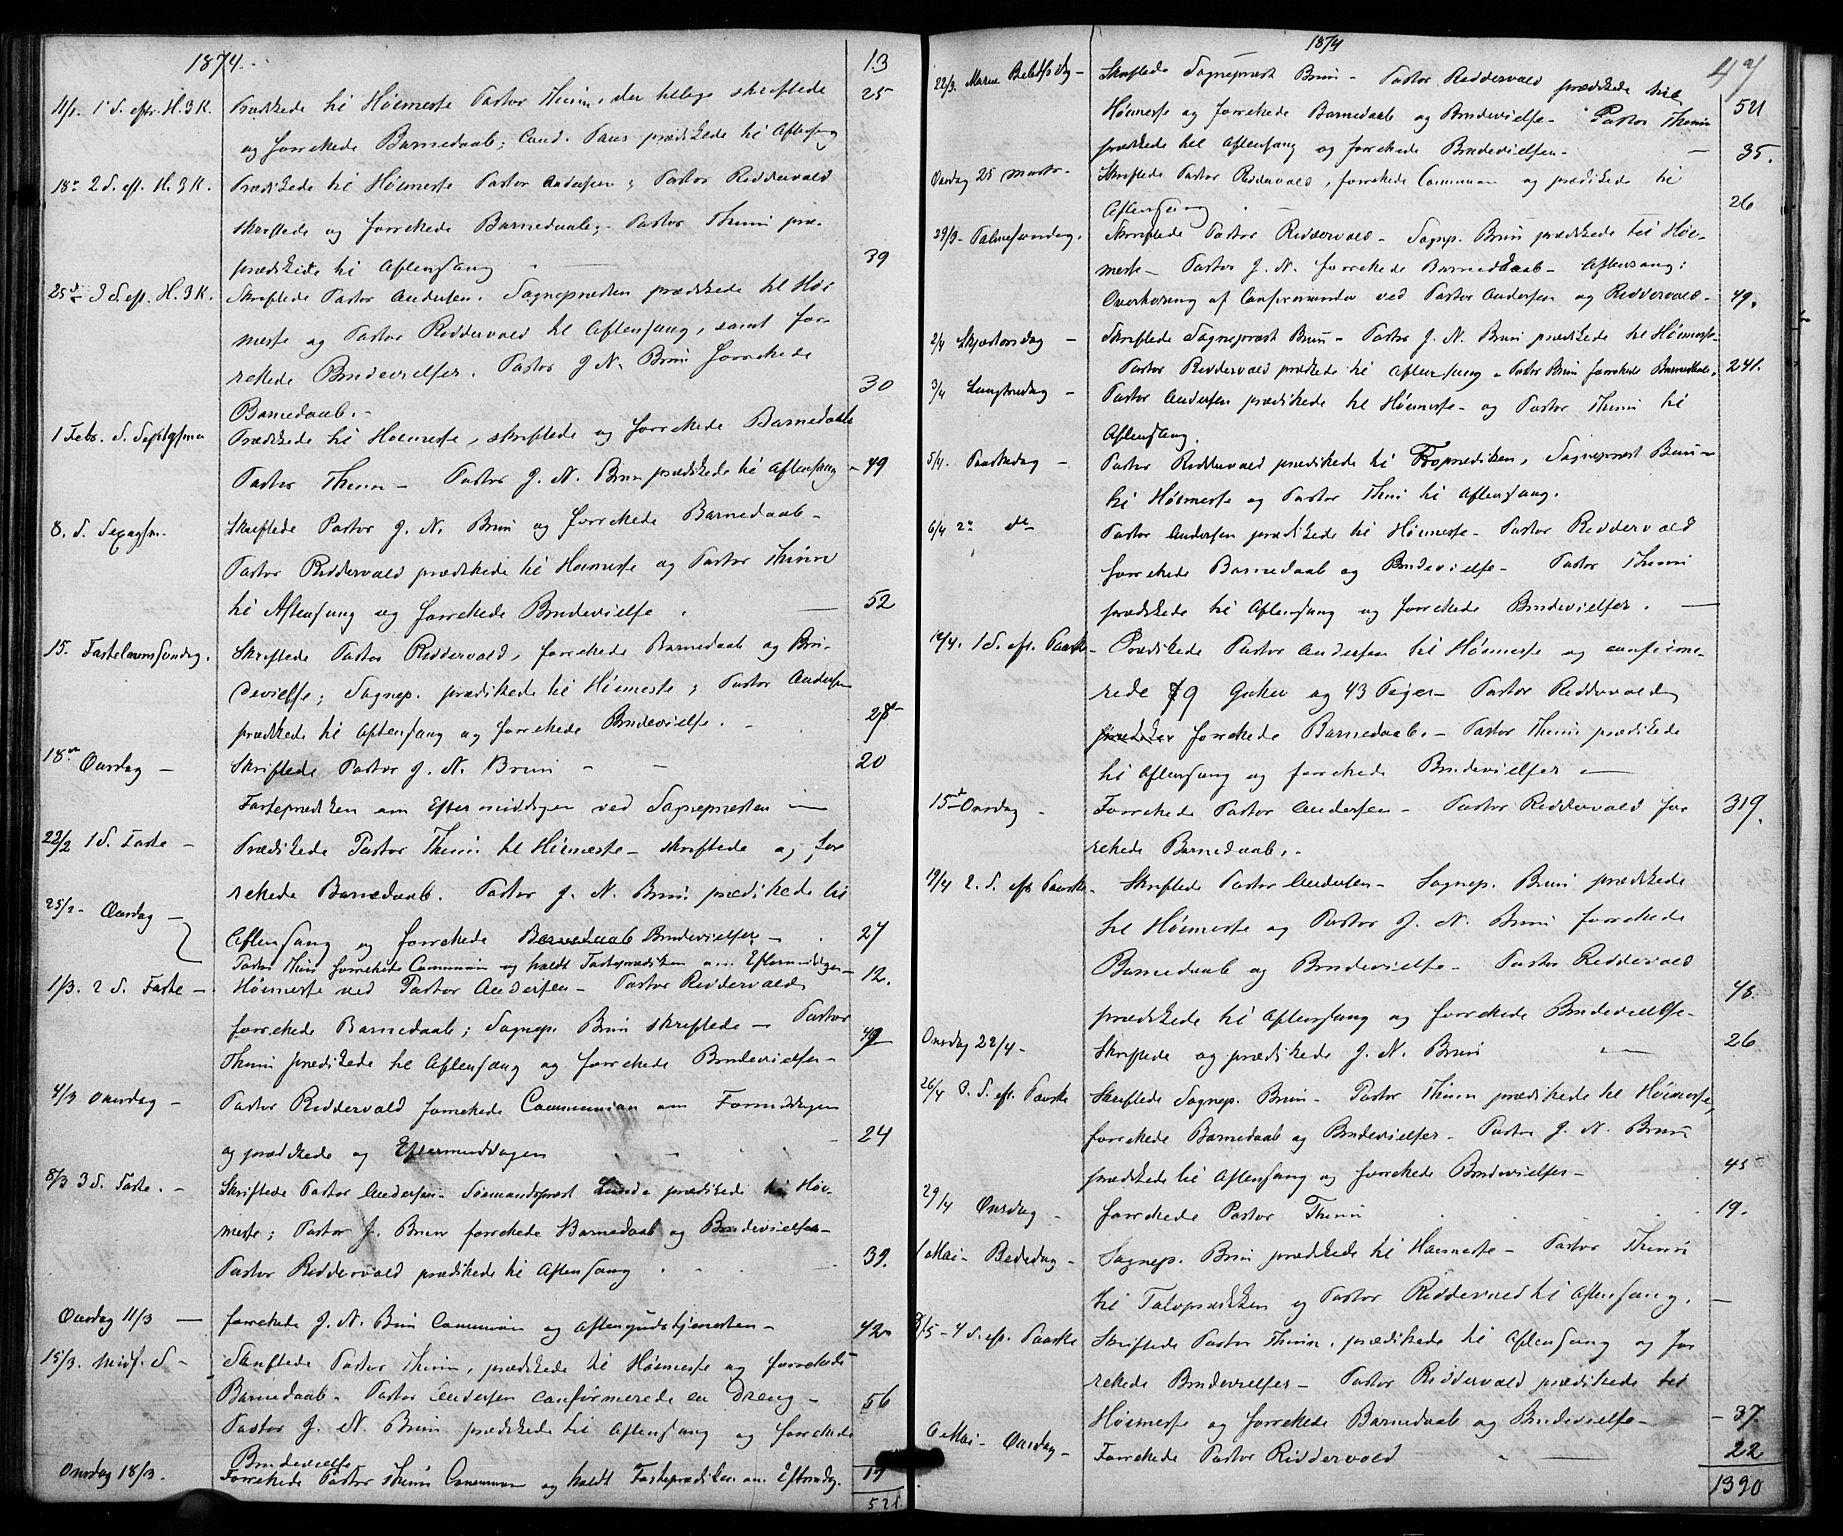 1874.
13
11/1. 1 S. efter H. 3 K. Prædikede til Høimesse Pastor Thinn, der tillige skriftede 25
og forrettede Barnedaab; Cand. Paus prædikede til Aftensang
18de 2 S. eft. H. 3 K. Prædikede til Høimesse Pastor Andersen; Pastor Riddervold
skriftede og forrettede Barnedaab; Pastor Thinn præ-
prædikede til Aftensang 39
25de 3 S. eft. H. 3 K. Skriftede Pastor Andersen. Sognepresten prædikede til Høi
messe og Pastor Riddervold til Aftensang, samt for-
rettede Brudevielser. Pastor J. N. Brun forrettede
Barnedaab. 30
1 Febr. S. Septgsma Prædikede til Høimesse, skriftede og forrettede Barnedaab
Pastor Thinn - Pastor J. N. Brun prædikede til Aftensang - 49
8. S. Sexagsm. Skriftede Pastor J. N. Brun og forrettede Barnedaab -
Pastor Riddervold prædikede til Høimesse og Pastor Thinn
til Aftensang og forrettede Brudevielse. 52
15. Fastelavnssøndag. Skriftede Pastor Riddervold, forrettede Barnedaab og Bru-
devielse; Sognep. prædikede til Høimesse; Pastor Andersen
prædikede til Aftensang og forrettede Brudevielse. 28
18de Onsdag - Skriftede Pastor J. N. Brun - - 20
Fasteprædiken om Eftermiddagen ved Sognepresten -
22/2 1 S. Faste - Prædikede Pastor Thinn til Høimesse - skriftede og for
rettede Barnedaab. Pastor J. N. Brun prædikede til
25/2 - Onsdag -
Aftensang og forrettede Barnedaab Brudevielser - 27
Pastor Thinn forrettede Communion og holdt Fasteprædiken om Eftermiddagen -
1/3. 2 S. Faste - Høimesse ved Pastor Andersen - Pastor Riddervold 12.
forrettede Barnedaab; Sognep. Brun skriftede - Pastor
Thinn prædikede til Aftensang og forrettede Brudevielser - 49
4/3 Onsdag - Pastor Riddervold forrettede Communion om Formiddagen
og prædikede og Eftermiddagen - 24
8/3 3 S. Faste. - Skriftede Pastor Andersen - Sømandsprest Lunde prædikede til Høi-
messe; Pastor J. Brun forrettede Barnedaab og Brudevielser -
Pastor Riddervold prædikede til Aftensang. 39.
Onsdag 11/3 - forrettede J. N. Brun Communion og Aftengudstjenesten - 42
15/3. Midf. S - Skriftede Pastor Thinn, prædikede til Høimesse og forrettede
Barnedaab - Pastor Andersen confirmerede en Dreng - 56
Pastor J. N. Brun prædikede til Aftensang og forrettede
Brudevielse
Onsdag 18/3. Forrettede Pastor Thinn Communion og holdt Fasteprædiken om Eftermdg. 19
521
1874
47
22/3. Mariæ Bebds dg - Skriftede Sogneprest Brun - Pastor Riddervold prædikede til
Høimesse og forrettede Barnedaab og Brudevielse - Pastor Thinn 521
prædikede til Aftensang og forrettede Brudevielser - 35.
Onsdag 25 Marts - Skriftede Pastor Riddervold, forrettede Communion og prædikede til
Aftensang - 26
29/3 - Palmesøndag. Skriftede Pastor Riddervold - Sognep. Brun prædikede til Høi-
messe - Pastor J. N. forrettede Barnedaab - Aftensang:
Overhøring af Confirmander ved Pastor Andersen og Riddervold - 49.
2/4 Skjærtorsdag - Skriftede Sogneprest Brun - Pastor J. N. Brun prædikede til Høimesse -
Pastor Riddervold prædikede til Aftensang - Pastor Brun forrettede Barnedaab. 241.
3/4 Langfredag - Pastor Andersen prædikede til Høimesse - og Pastor Thinn til
Aftensang.
5/4. Paaskedag - Pastor Riddervold prædikede til Froprædiken, Sogneprest Brun -
til Høimesse og Pastor Thinn til Aftensang.
6/4 2den do Pastor Andersen prædikede til Høimesse - Pastor Riddervold
forrettede Barnedaab og Brudevielse - Pastor Thinn
prædikede til Aftensang og forrettede Brudevielser. -
12/4. 1 S. eft. Paaske - Prædikede Pastor Andersen til Høimesse og confirme-
rede 79 Gutter og 43 Piger - Pastor Riddervold
prædiker forrettede Barnedaab. - Pastor Thinn prædikede
til Aftensang og forrettede Brudevielser -
15de Onsdag - Forrettede Pastor Andersen - Pastor Riddervold for 319.
rettede Barnedaab. -
19/4 2. S. eft Paaske - Skriftede Pastor Andersen - Sognep. Brun prædikede
til Høimesse og Pastor J. N. Brun forrettede
Barnedaab og Brudevielse - Pastor Riddervold
prædikede til Aftensang og forrettede Brudevielse - 48.
Onsdag 22/4 - Skriftede og prædikede J. N. Brun - 26
26/4 3. S. eft. Paaske Skriftede Sognep. Brun - Pastor Thinn prædikede til Høimesse,
forrettede Barnedaab og Brudevielser - Pastor J. N. Brun
prædikede til Aftensang og forrettede Brudevielser - 45
29/4 Onsdag - forrettede Pastor Thinn 19.
1 Mai - Bededag - Sognep. Brun prædikede til Høimesse - Pastor Thinn
til Froprædiken og Pastor Riddervold til Aftensang. -
3/5 - 4 S. eft. Paaske Skriftede Pastor Thinn, prædikede til Aftensang og for
rettede Brudevielser - Pastor Riddervold prædikede til
Høimesse og forrettede Barnedaab og Brudevielse - 37.
6 Mai - Onsdag - Forrettede Pastor Riddervold - 22
1390